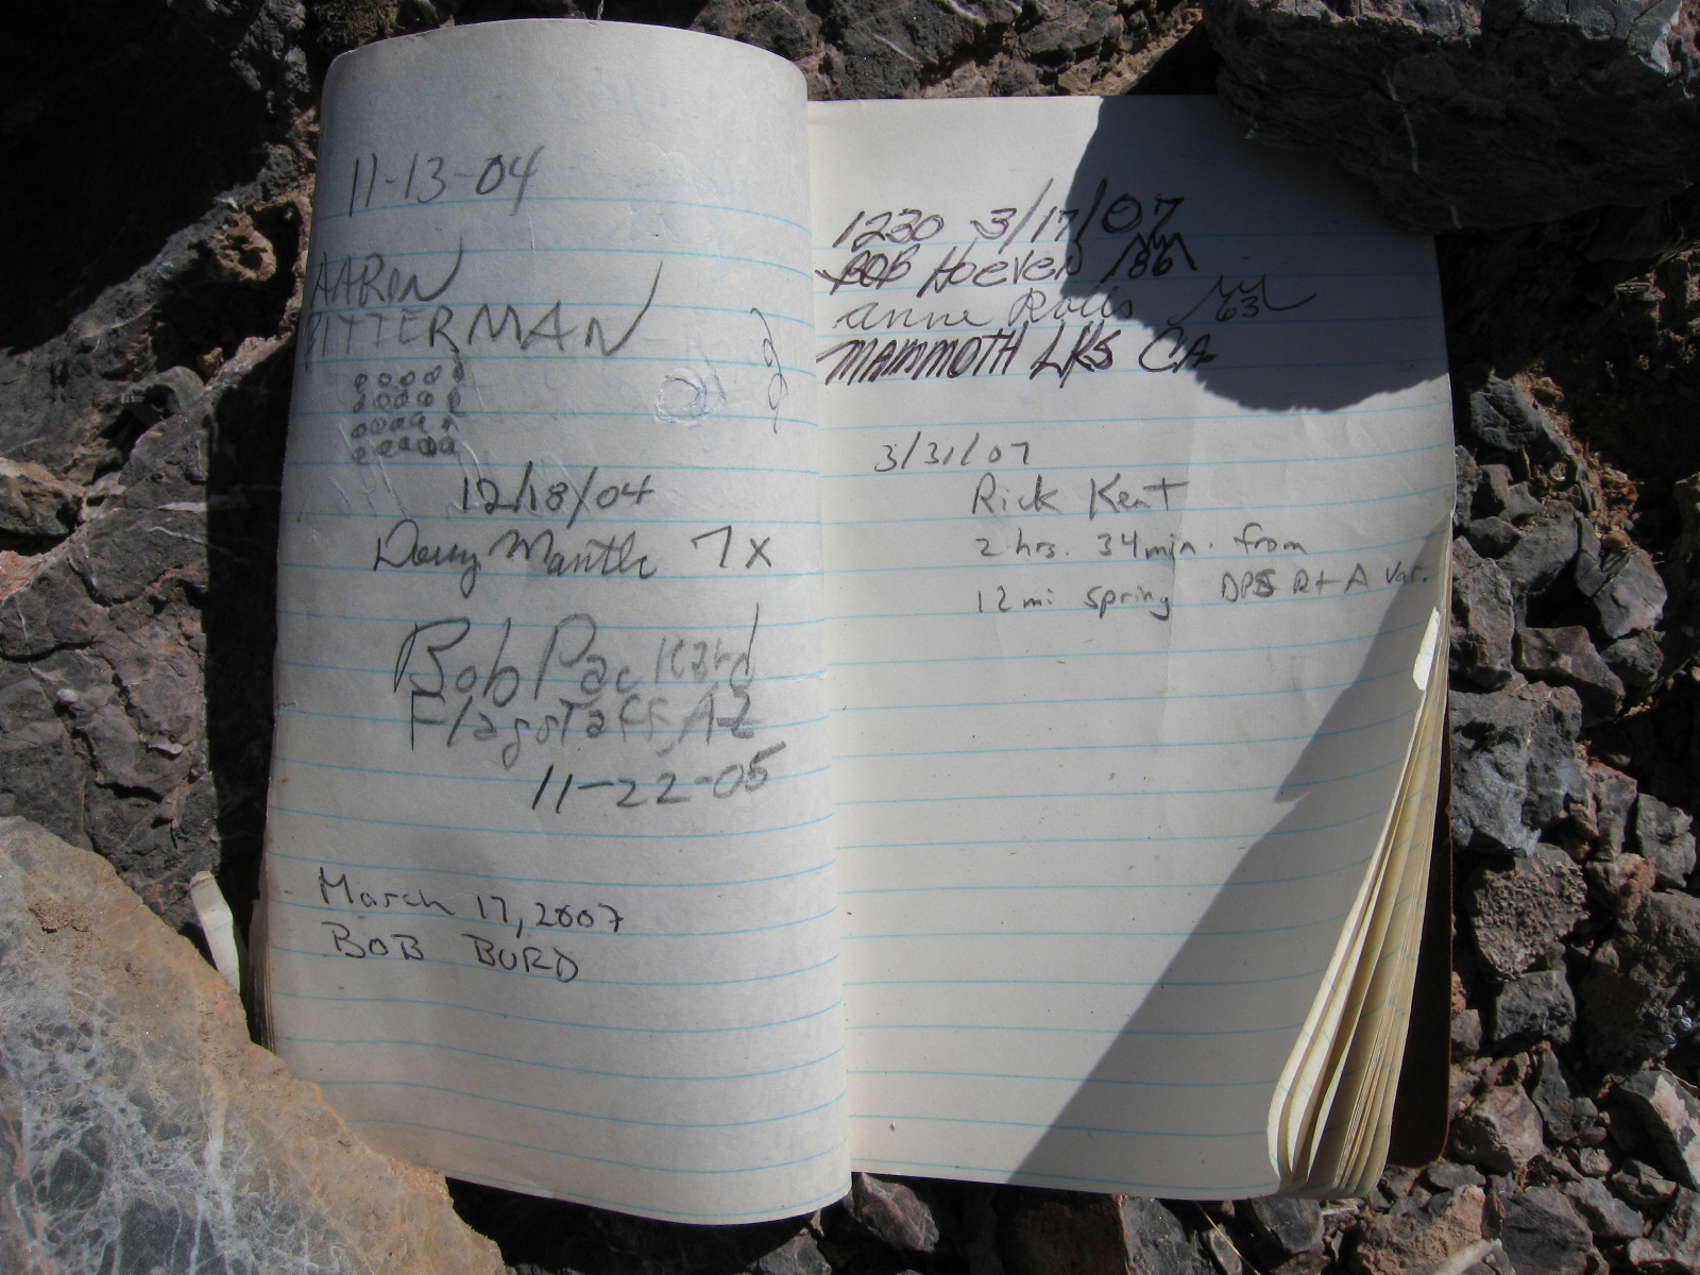 11-13-04
AARON
BITTERMAN
12/18/04
Doug Mantle 7x
Bob Packard
Flagstaff, AZ
11-22-05
March 17, 2007
BOB BURD
1230 3/17/07
BOB Hoeven 86
Anne Rolls 63
MAMMOTH LKS CA
3/31/07
Rick Kent
2 hrs. 34 min. from
12 mi spring DPS Rt A Var.